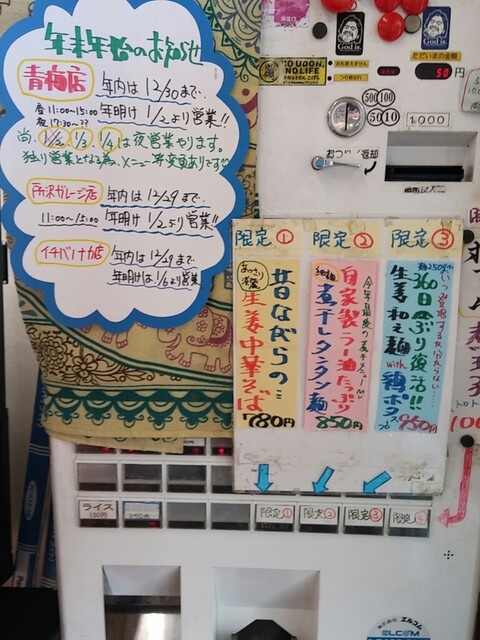 年末年始のお知らせ
青梅店
年内は12/30まで、
昼11:00~15:00 年明け1/2より営業!!
夜17:30~23
尚、1/2、1/3、1/4は夜営業やります。
独り営業となる為、メニュー等変更ありです
所沢ガレージ店 年内は12/29まで、
11:00~15:00 年明け1/2より営業!!
イチバンナカ店 年内は12/29まで、
年明けは1/6より営業
God is.
God is.
NO UDON,
NO LIFE
ただいまの金額
50円
500 100
50 10
1000
おつり返却
限定①
限定②
限定③
あっさり
昔ながらの…
生姜中華そば
780円
細麺
自家製ラー油たっぷり
煮干しタンタン麺
850円
360日ぶり復活!!
生姜和え麺
with 鶏ポタ
950円
ライス
限定①
限定②
限定③
限定④
株式会社 エルコム
ELCOM